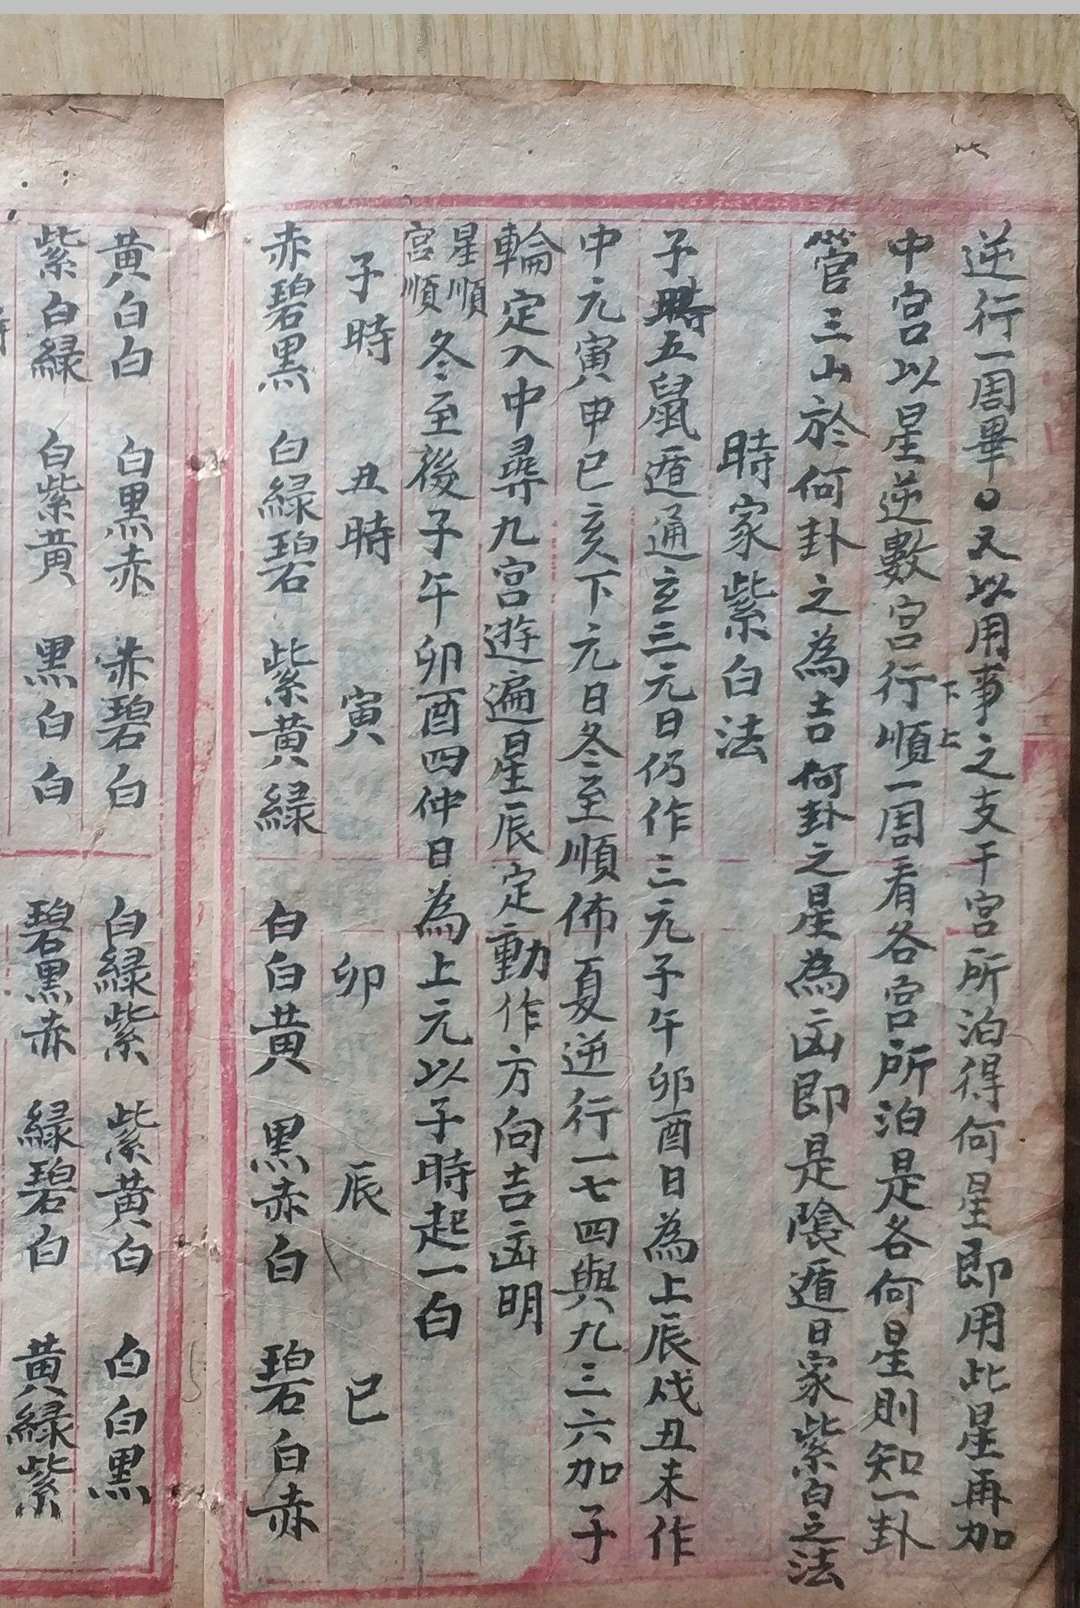 逆行一周畢又以用事之支干宮所泊得何星即用此星再加
中宮以星逆數宮行順一周看各宮所泊是各何星則知一卦
下上
管三山於何卦之為吉何卦之星為凶即是陰遁日家紫白之法
時家紫白法
子時五鼠遁通立三元日仍作三元子午卯酉日為上辰戌丑未作
中元寅申巳亥下元日冬至順佈夏逆行一七四與九三六加子
輪定入中尋九宮遊遍星辰定動作方向吉凶明
星順
宮順
冬至後子午卯酉四仲日為上元以子時起一白
子時 丑時 寅 卯 辰 巳
赤碧黑 白綠碧 紫黃綠 白白黃 黑赤白 碧白赤
黃白白 白黑赤 赤碧白 白綠紫 紫黃白 白白黑
紫白綠 白紫黃 黑白白 碧黑赤 綠碧白 黃綠紫